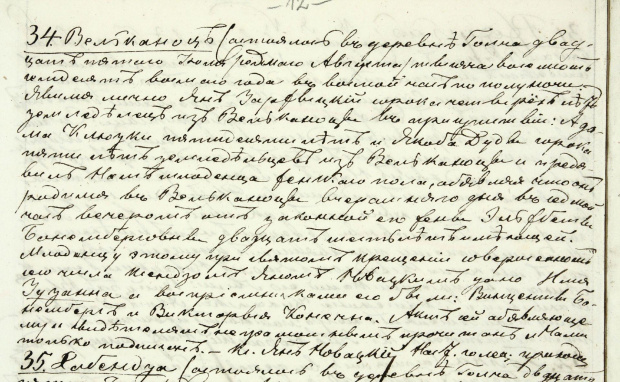 -12-
34. Велканоцъ Состоялось въ деревнѣ Голча двад-
цать пятаго Іюля /седмаго Августа/ тысяча восемьсотъ
семдесятъ восмаго года въ восмой часъ по полуночи.
Явился лично Янъ сорока четырехъ лѣтъ
земледѣлецъ изъ Велканоцы въ присутствіи: Ада-
ма Клюзки пятидесяти лѣтъ и Якоба Дудзи сорока
пяти лѣтъ земледѣльцевъ изъ Велканоцы и предя-
вилъ Намъ младенца женскаго пола, объявляя что онъ
родился въ Велканоцы вчерашняго дня въ седмой
часъ вечеромъ отъ законной его жены Эльжбеты
двадцать шесть лѣтъ имѣющей.
Младенцу этому при святомъ крещеніи совершенномъ
сего числа Ксендзомъ Яномъ Новацкимъ дано Имя
Зузанна и воспріемниками его были: Винцентій Ба-
и Викторья Конечна. Актъ сей объявляюще-
му и свидѣтелямъ неграмотнымъ прочитанъ и Нами
только подписанъ. – Кс. Янъ Новацкій
35. Хобендза Состоялось въ деревнѣ Голча двадцать